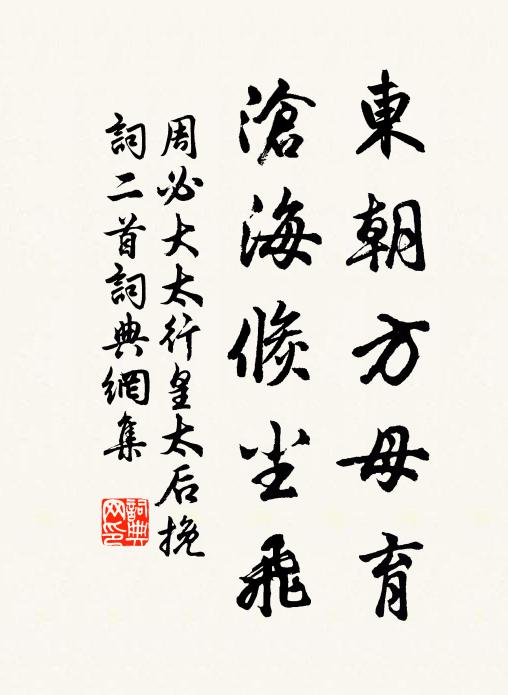 東朝方母育
滄海倐尘飛
周必大太行皇太后挽
詞二首詞典網集
詞典
网印